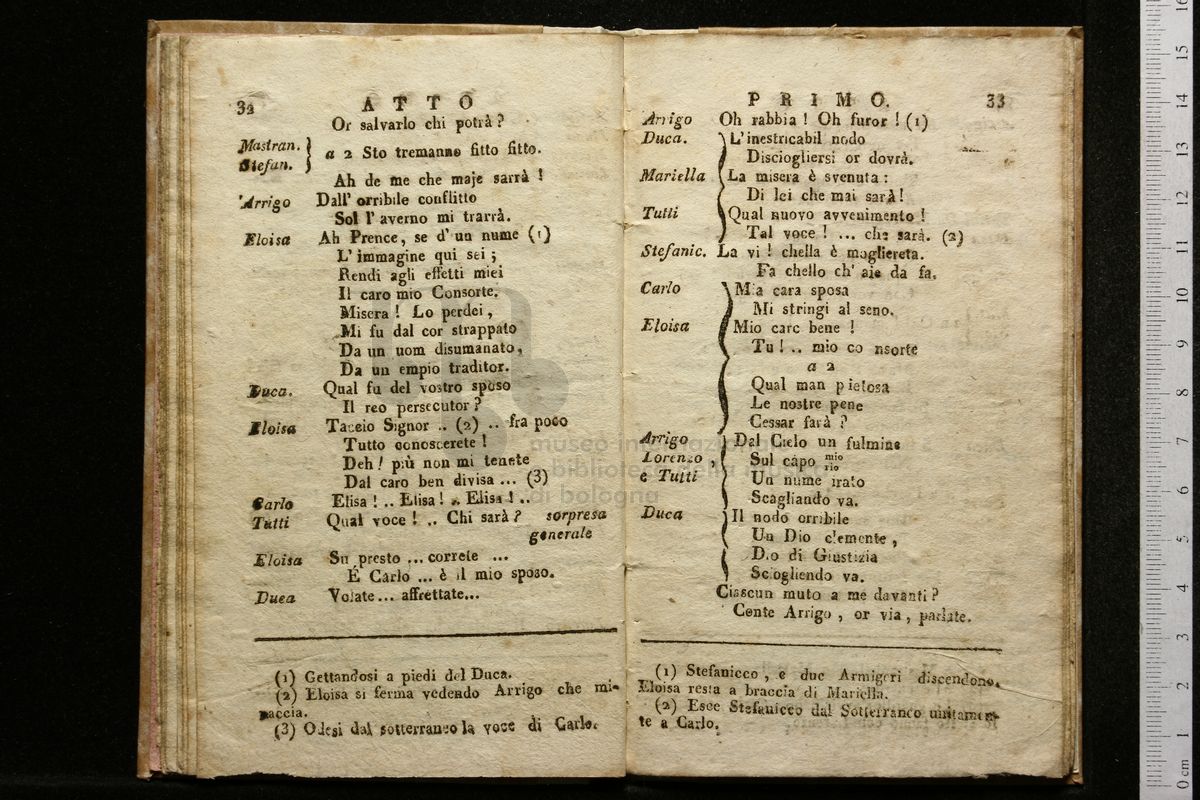 32 ATTO
Or salvarlo chi potrà?
Mastran. } a 2 Sto tremanno fitto fitto.
Stefan. } Ah de me che maje sarrà!
Arrigo Dall' orribile conflitto
Sol l' averno mi trarrà.
Eloisa Ah Prence, se d' un nume (1)
L' immagine qui sei;
Rendi agli effetti miei
Il caro mio Consorte.
Misera! Lo perdei,
Mi fu dal cor strappato
Da un uom disumanato,
Da un empio traditor.
Duca. Qual fu del vostro sposo
Il reo persecutor?
Eloisa Taccio Signor .. (2) .. fra poco
Tutto conoscerete!
Deh! più non mi tenete
Dal caro ben divisa ... (3)
Carlo Elisa!.. Elisa!.. Elisa!..
Tutti Qual voce!.. Chi sarà? sorpresa
generale
Eloisa Su presto ... correte ...
É Carlo ... è il mio sposo.
Duca Volate... affrettate...
(1) Gettandosi a piedi del Duca.
(2) Eloisa si ferma vedendo Arrigo che mi-
naccia.
(3) Odesi dal sotterraneo la voce di Carlo.
PRIMO. 33
Arrigo Oh rabbia! Oh furor! (1)
Duca. L' inestricabil nodo
Disciogliersi or dovrà.
Mariella La misera è svenuta:
Di lei che mai sarà!
Tutti Qual nuovo avvenimento!
Tal voce! ... che sarà. (2)
Stefanic. La vi! chella è mogliereta.
Fa chello ch' aie da fa.
Carlo Mia cara sposa
Mi stringi al seno.
Eloisa Mio care bene!
Tu!.. mio co nsorte
a 2
Qual man pietosa
Le nostre pene
Cessar farà?
Arrigo Dal Cielo un fulmine
Lorenzo, Sul capo mio
rio
e Tutti Un nume irato
Scagliando va.
Duca Il nodo orribile
Un Dio clemente,
Dio di Giustizia
Sciogliendo va.
Ciascun muto a me davanti?
Conte Arrigo, or via, parlate.
(1) Stefanicco, e due Armigeri discendono.
Eloisa resta a braccia di Mariella.
(2) Esce Stefanicco dal Sotterraneo unitamen-
te a Carlo.
museo internazionale
e biblioteca della musica
di bologna
0 cm 1 2 3 4 5 6 7 8 9 10 11 12 13 14 15 16